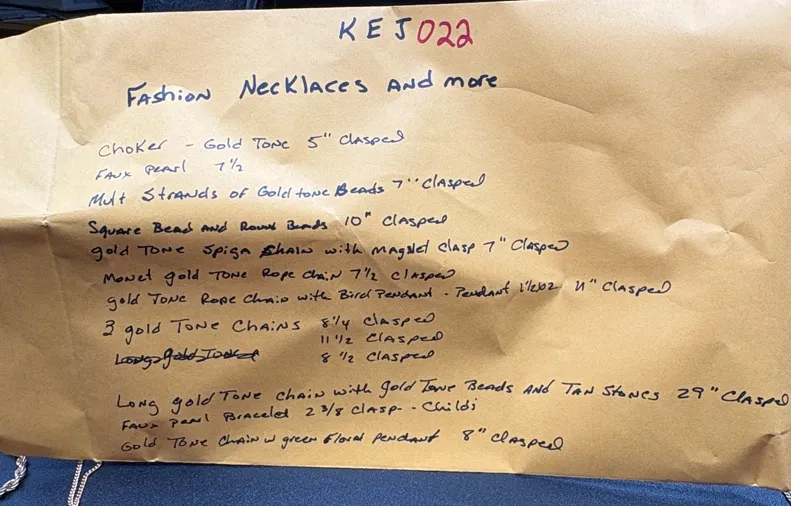 KEJ022
Fashion Necklaces and more
Choker - Gold Tone 5" Clasped
Faux Pearl 7 1/2
Mult Strands of Gold tone Beads 7" Clasped
Square Bead and Round Beads 10" Clasped
gold Tone Spiga Chain with Magnet Clasp 7" Clasped
Monet gold Tone Rope Chain 7 1/2 Clasped
gold Tone Rope Chain with Bird Pendant - Pendant 11" Clasped
3 gold Tone Chains 8 1/4 Clasped
11 1/2 Clasped
8 1/2 Clasped
Long gold Tone Chain with gold Tone Beads And Tan Stones 29" Clasped
Faux Pearl Bracelet 2 3/8 Clasp - Child's
Gold Tone Chain w green Floral Pendant 8" Clasped